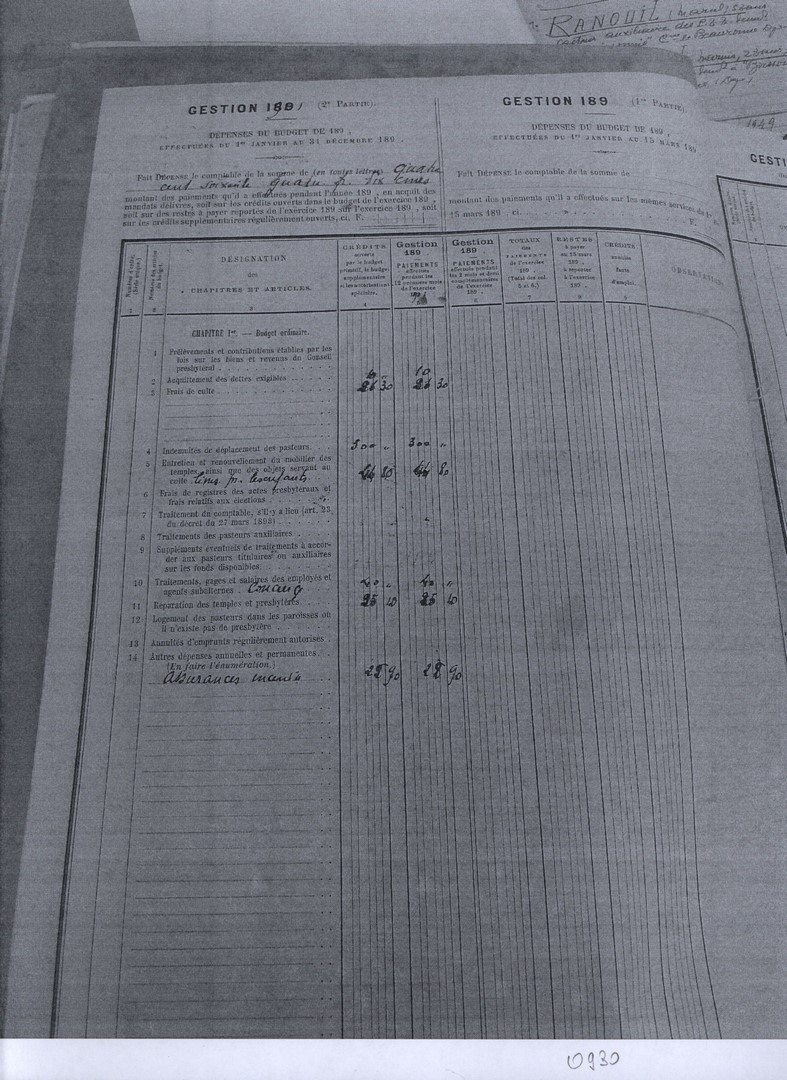 RANOUIL (Marcel) 52 ans
canton auxiliaire des
de Beauronne
1949
GESTION 1891 (2e PARTIE).
DÉPENSES DU BUDGET DE 189 ,
EFFECTUÉES DU 1er JANVIER AU 31 DÉCEMBRE 189 .
Fait DÉPENSE le comptable de la somme de (en toutes lettres) quatre
cent soixante quatre f. dix cmes
montant des paiements qu'il a effectués pendant l'année 189 , en acquit des
mandats délivrés, soit sur les crédits ouverts dans le budget de l'exercice 189 ,
soit sur des restes à payer reportés de l'exercice 189 sur l'exercice 189 , soit
sur les crédits supplémentaires régulièrement ouverts, ci. F.
GESTION 189 (1re PARTIE).
DÉPENSES DU BUDGET DE 189 ,
EFFECTUÉES DU 1er JANVIER AU 15 MARS 189
Fait DÉPENSE le comptable de la somme de
montant des paiements qu'il a effectués sur les mêmes services du 1er
15 mars 189 ci. . . . F.
GESTI
DÉSIGNATION
des
CHAPITRES ET ARTICLES.
CRÉDITS
ouverts
par le budget
primitif, le budget
supplémentaire
et les autorisations
spéciales.
Gestion
189
PAIEMENTS
effectués
pendant les
12 premiers mois
de l'exercice
Gestion
189
PAIEMENTS
effectués pendant
les 3 mois
complémentaires
de l'exercice
189 .
TOTAUX
des
PAIEMENTS
de l'exercice
189
(Total des col.
5 et 6.)
RESTES
à payer
au 15 mars
189 ,
à reporter
à l'exercice
189 .
CRÉDITS
annulés
faute
d'emploi.
OBSERVATIONS
1 2 3 4 7 8 9
CHAPITRE Ier. — Budget ordinaire.
1 Prélèvements et contributions établies par les
lois sur les biens et revenus du Conseil
presbytéral . . . 10 10
2 Acquittement des dettes exigibles . . .
3 Frais de culte . . . 26 30 26 30
4 Indemnités de déplacement des pasteurs. . . 300 " 300 "
5 Entretien et renouvellement du mobilier des
temples, ainsi que des objets servant au
culte 44 80 44 80
6 Frais de registres des actes presbytéraux et
frais relatifs aux élections . . .
7 Traitement du comptable, s'il y a lieu (art. 25,
du décret du 27 mars 1893) . . .
8 Traitements des pasteurs auxiliaires . .
9 Suppléments éventuels de traitements à accor-
der aux pasteurs titulaires ou auxiliaires
sur les fonds disponibles. . .
10 Traitements, gages et salaires des employés et
agents subalternes . 40 " 40 "
11 Réparation des temples et presbytères. . . 25 10 25 10
12 Logement des pasteurs dans les paroisses où
il n'existe pas de presbytère . .
13 Annuités d'emprunts régulièrement autorisés .
14 Autres dépenses annuelles et permanentes. .
(En faire l'énumération.)
Assurances incendie 90 90
0930